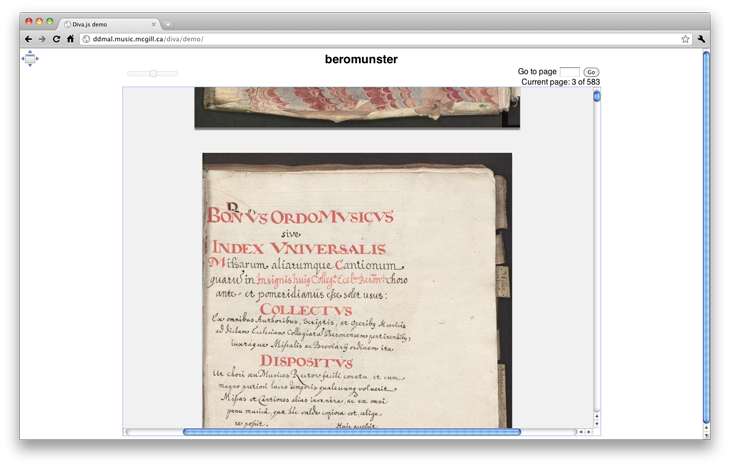 Diva.js demo
ddmal.music.mcgill.ca/diva/demo/
beromunster
Go to page
Go
Current page: 3 of 583
BONVS ORDO MVSICVS
sive
INDEX VNIVERSALIS
Missarum aliarumque Cantionum
quarū in Insignis huiq Choro
ante- et pomeridianus esse solet usus:
COLLECTVS
Ex omnibus Authoribus, Scriptis, et Operibq Musicis
ad Ecclesiam Collegiatā Beronensem pertinentibq,
iuxtaque Missalis ac Breviarÿ ordinem ita
DISPOSITVS
Ut chori seu Musices Rector facili conatu, et cum
magno pretiosi temporis qualecunq voluerit
Missas et Cantiones alias invenire, ac ex omni
penu musicā, quæ hic valde copiosa est, selige
re possit.